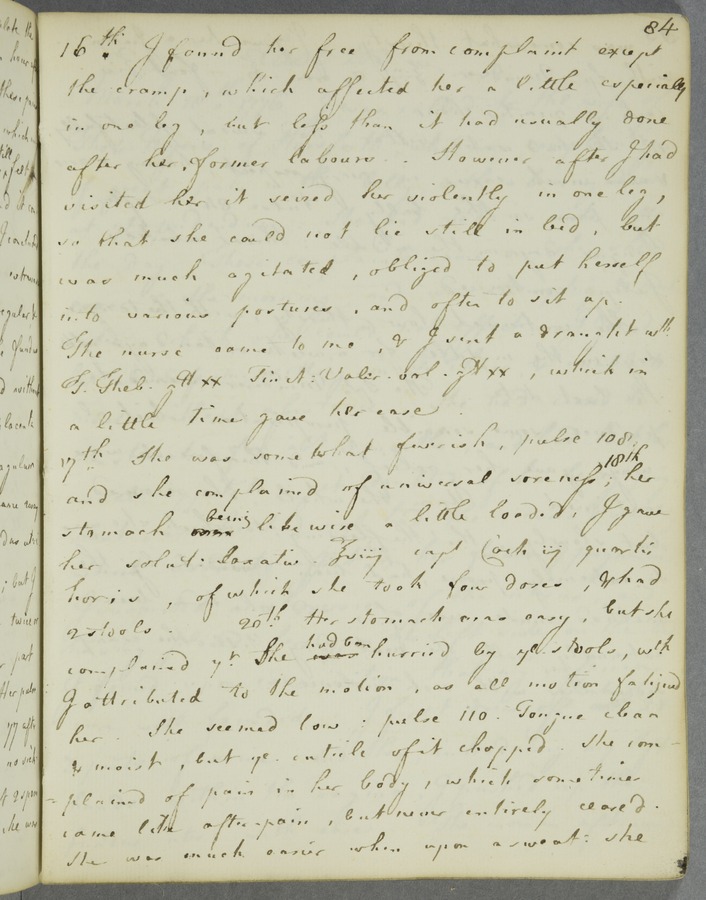 84
16th. I found her free from complaint except
the cramp, which affected her a little especially
in one leg, but less than it had usually done
after her former labours. However after I had
visited her it seized her violently in one leg,
so that she could not lie still in bed, but
was much agitated, obliged to put herself
into various postures, and often to sit up.
The nurse came to me, & I sent a draught wth
T. Theb. gtt xx Tinct: Valer. vol. gtt xx, which in
a little time gave her ease.
17th She was somewhat feverish, pulse 108,
and she complained of universal soreness; 18th her
stomach being likewise a little loaded, I gave
her solut: laxativ. capt quartis
horis, of which she took four doses, & had
2 stools. 20th Her stomach was easy, but she
complained yt She had been hurried by ye stools, wch
I attributed to the motion, as all motion fatigued
her. She seemed low: pulse 110. Tongue clean
& moist, but ye cuticle of it chopped. She com-
-plained of pain in her body, which sometimes
came like after-pain, but never entirely ceas'd.
She was much easier when upon a sweat: she